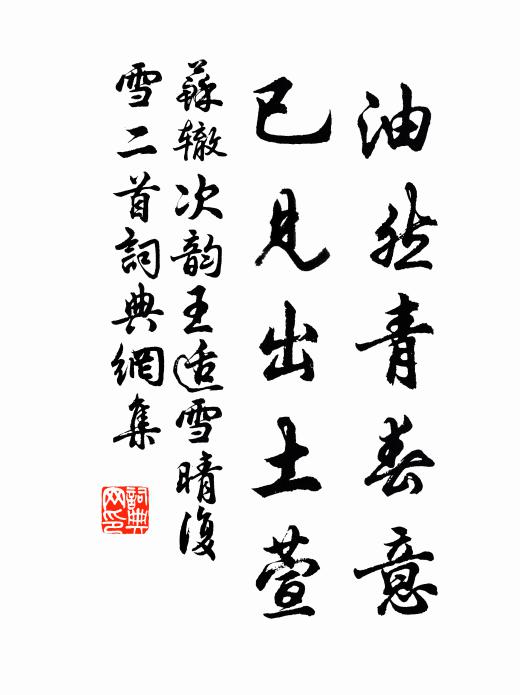 油然青春意
已見出土萱
蘇轍次韵王适雪晴復
雪二首詞典網集
詞典网印